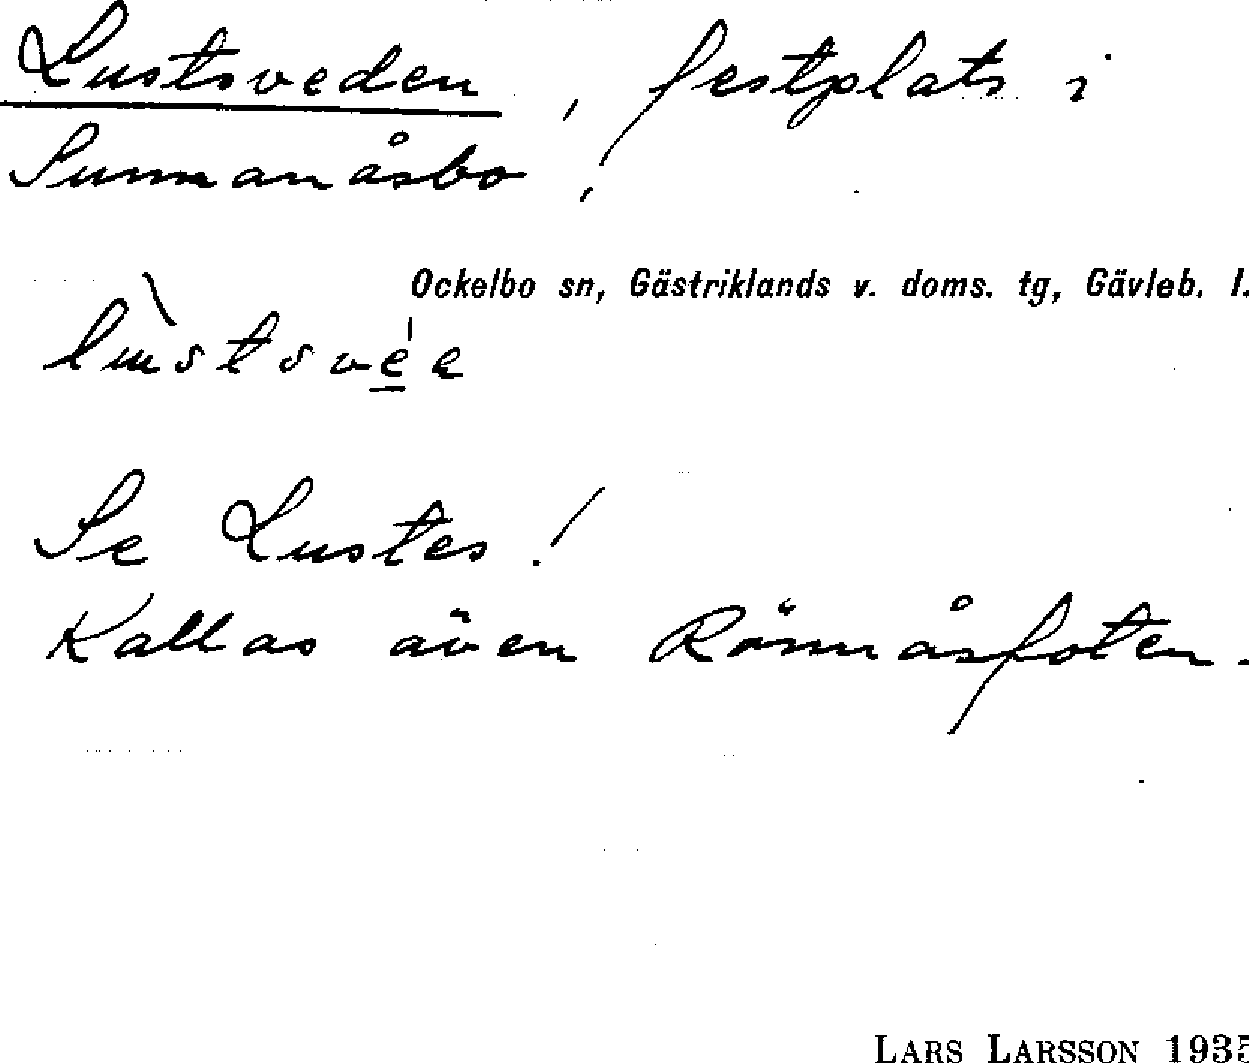 Lustsveden, festplats i
Sunnanåsbo.
Ockelbo sn, Gästriklands v. doms. tg, Gävleb. l.
Se Lustes!
Kallas även Rönnåsfoten.
LARS LARSSON 1935